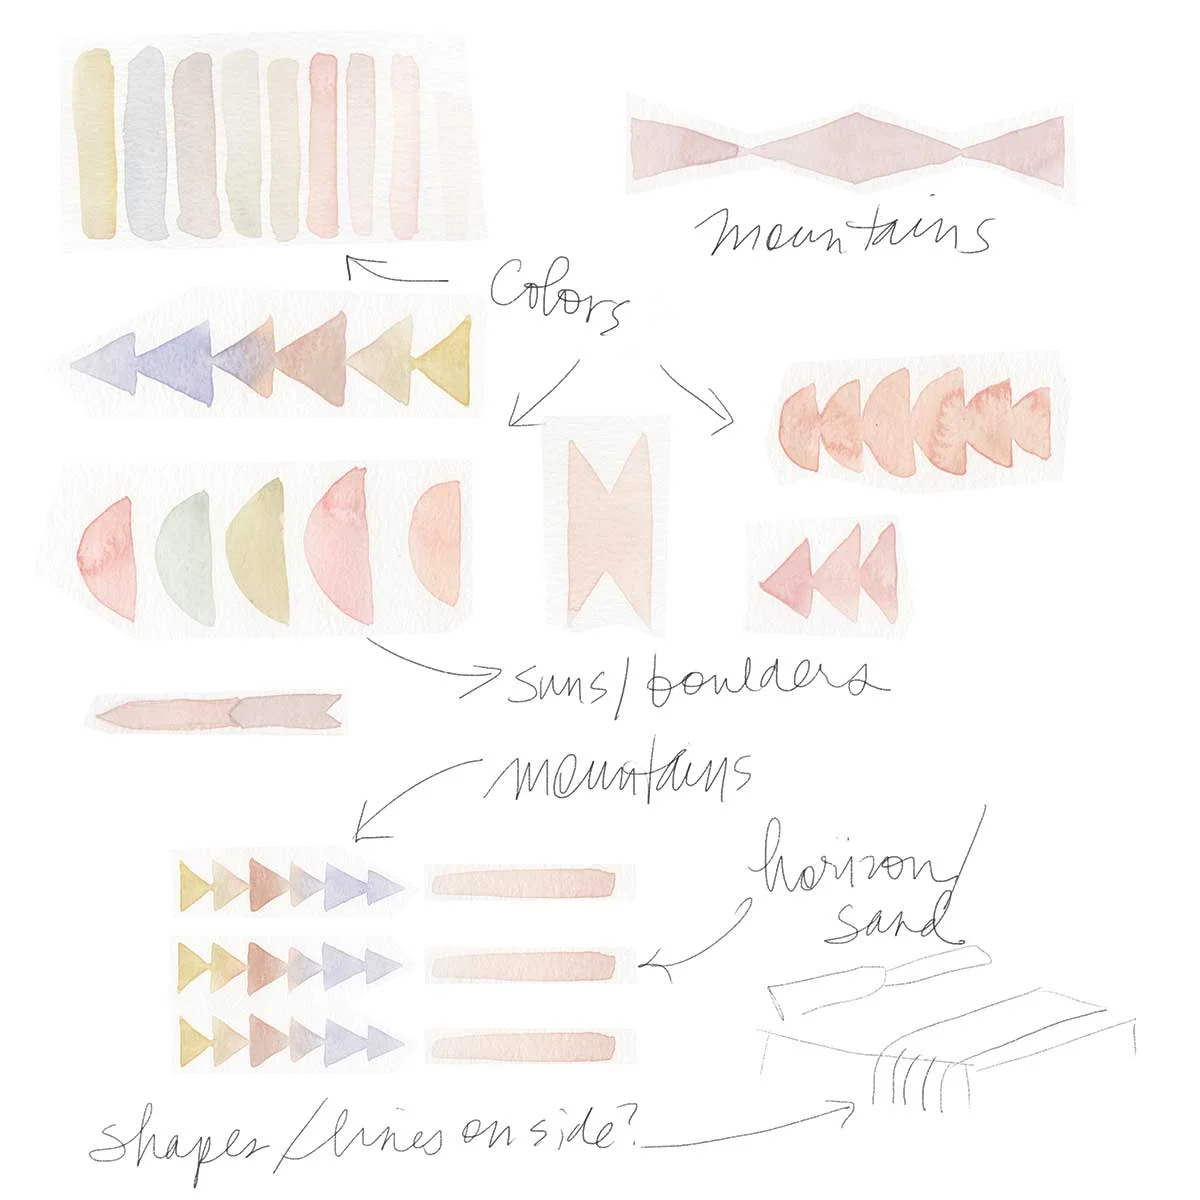 mountains
Colors
suns/boulders
mountains
horizon/
sand
shapes/lines on side?